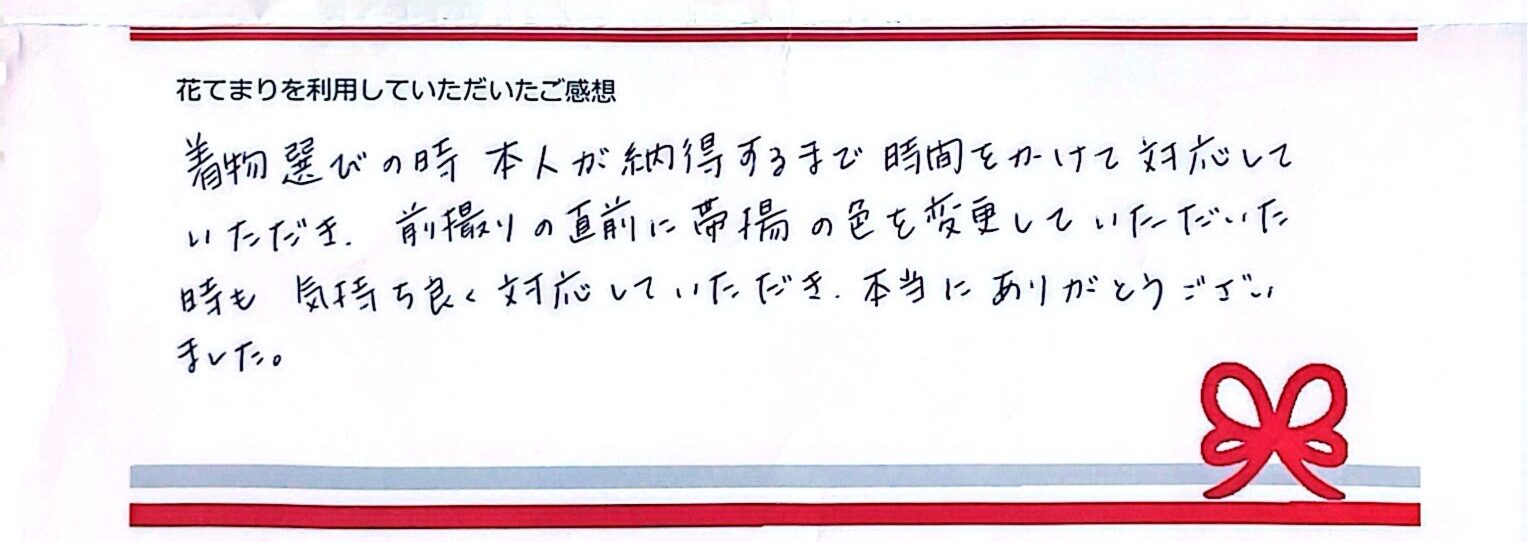 花てまりを利用していただいたご感想
着物選びの時 本人が納得するまで 時間をかけて 対応して
いただき、前撮りの直前に帯揚の色を変更していただいた
時も 気持ち良く対応していただき、本当にありがとうござい
ました。